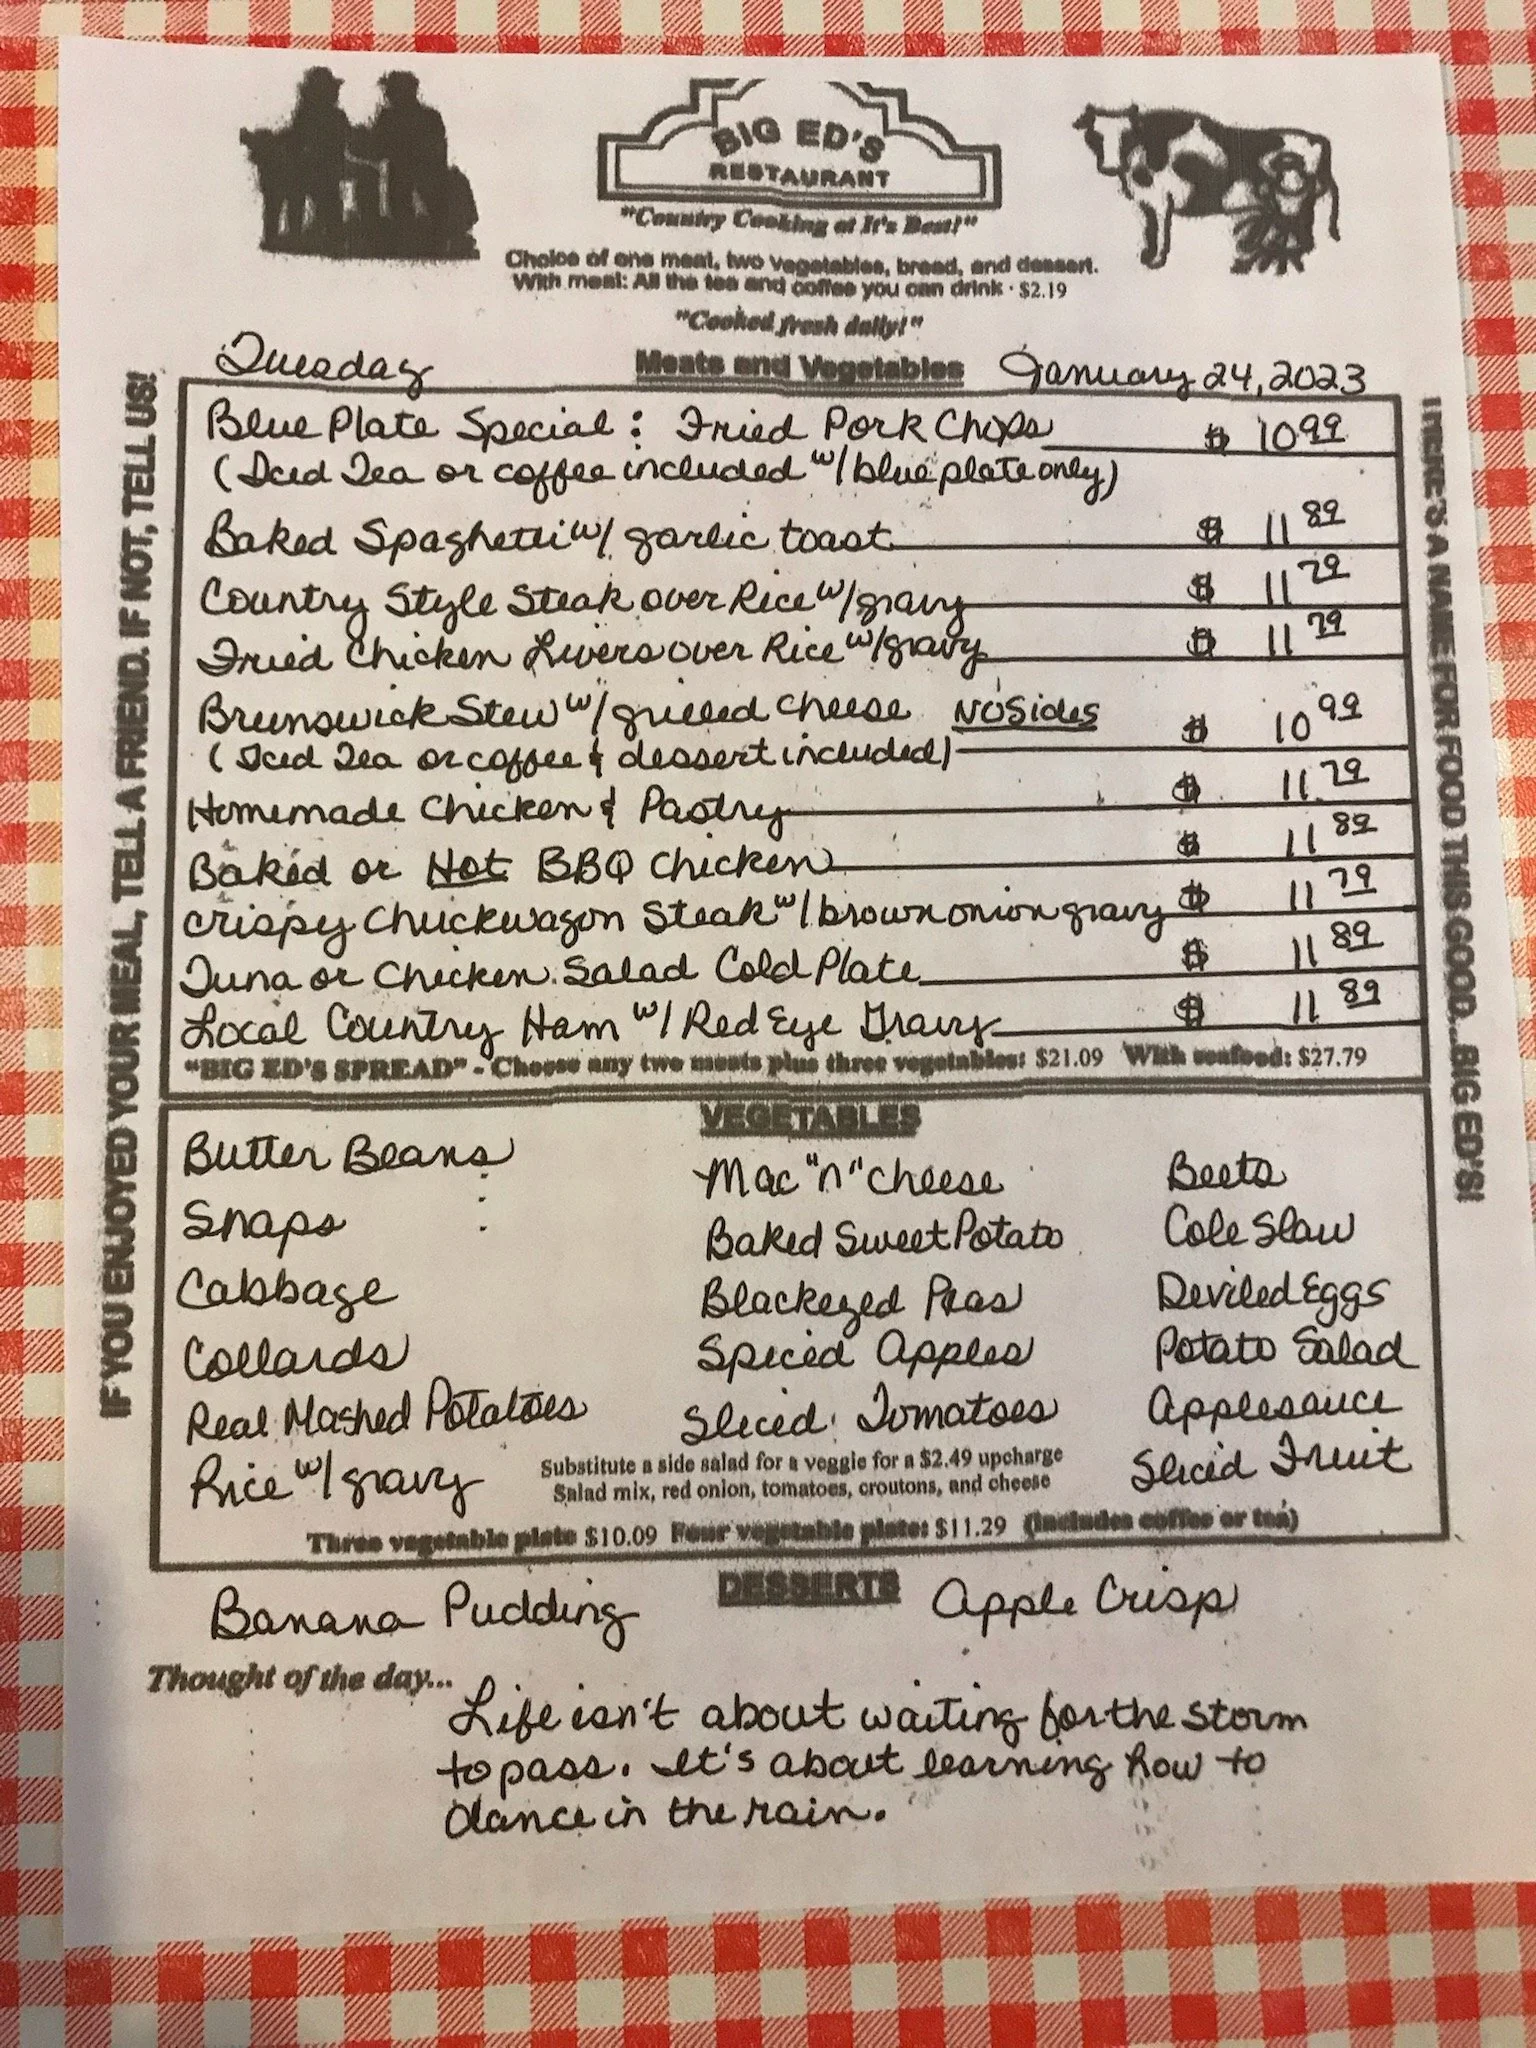 BIG ED'S
RESTAURANT
"Country Cooking at It's Best!"
Choice of one meat, two vegetables, bread, and dessert.
With meal: All the tea and coffee you can drink · $2.19
"Cooked fresh daily!"
Tuesday Meats and Vegetables January 24, 2023
Blue Plate Special: Fried Pork Chops $ 10 99
(Iced Tea or coffee included w/ blue plate only)
Baked Spaghetti w/ garlic toast $ 11 89
Country Style Steak over Rice w/ gravy $ 11 79
Fried Chicken Livers over Rice w/ gravy $ 11 79
Brunswick Stew w/ grilled cheese NO Sides $ 10 99
(Iced Tea or coffee & dessert included)
Homemade Chicken & Pastry $ 11 79
Baked or Hot BBQ Chicken $ 11 89
Crispy Chuckwagon Steak w/ brown onion gravy $ 11 79
Tuna or Chicken Salad Cold Plate $ 11 89
Local Country Ham w/ Red Eye Gravy $ 11 89
"BIG ED'S SPREAD" - Choose any two meats plus three vegetables: $21.09 With seafood: $27.79
VEGETABLES
Butter Beans Mac "n" cheese Beets
Snaps Baked Sweet Potato Cole Slaw
Cabbage Blackeyed Peas Deviled Eggs
Collards Spiced Apples Potato Salad
Real Mashed Potatoes Sliced Tomatoes Applesauce
Rice w/ gravy Sliced Fruit
Substitute a side salad for a veggie for a $2.49 upcharge
Salad mix, red onion, tomatoes, croutons, and cheese
Three vegetable plate $10.09 Four vegetable plate: $11.29 (includes coffee or tea)
DESSERTS
Banana Pudding Apple Crisp
Thought of the day...
Life isn't about waiting for the storm
to pass. It's about learning how to
dance in the rain.
IF YOU ENJOYED YOUR MEAL, TELL A FRIEND. IF NOT, TELL US!
THERE'S A NAME FOR FOOD THIS GOOD...BIG ED'S!